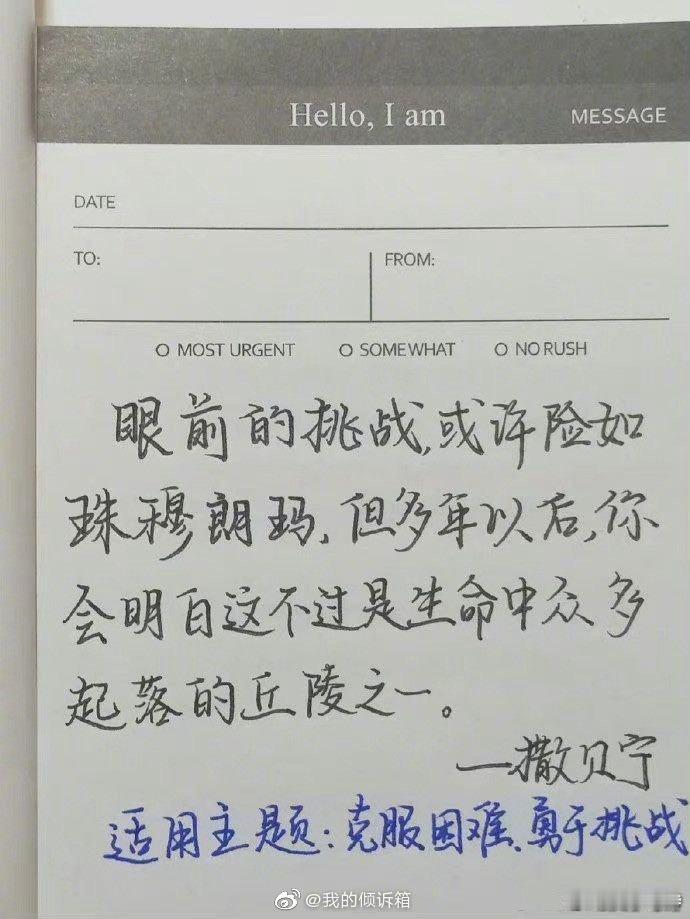 Hello, I am MESSAGE
DATE
TO: FROM:
O MOST URGENT O SOMEWHAT O NO RUSH
眼前的挑战,或许险如
珠穆朗玛,但多年以后,你
会明白这不过是生命中众多
起落的丘陵之一。
—撒贝宁
适用主题:克服困难、勇于挑战
@我的倾诉箱